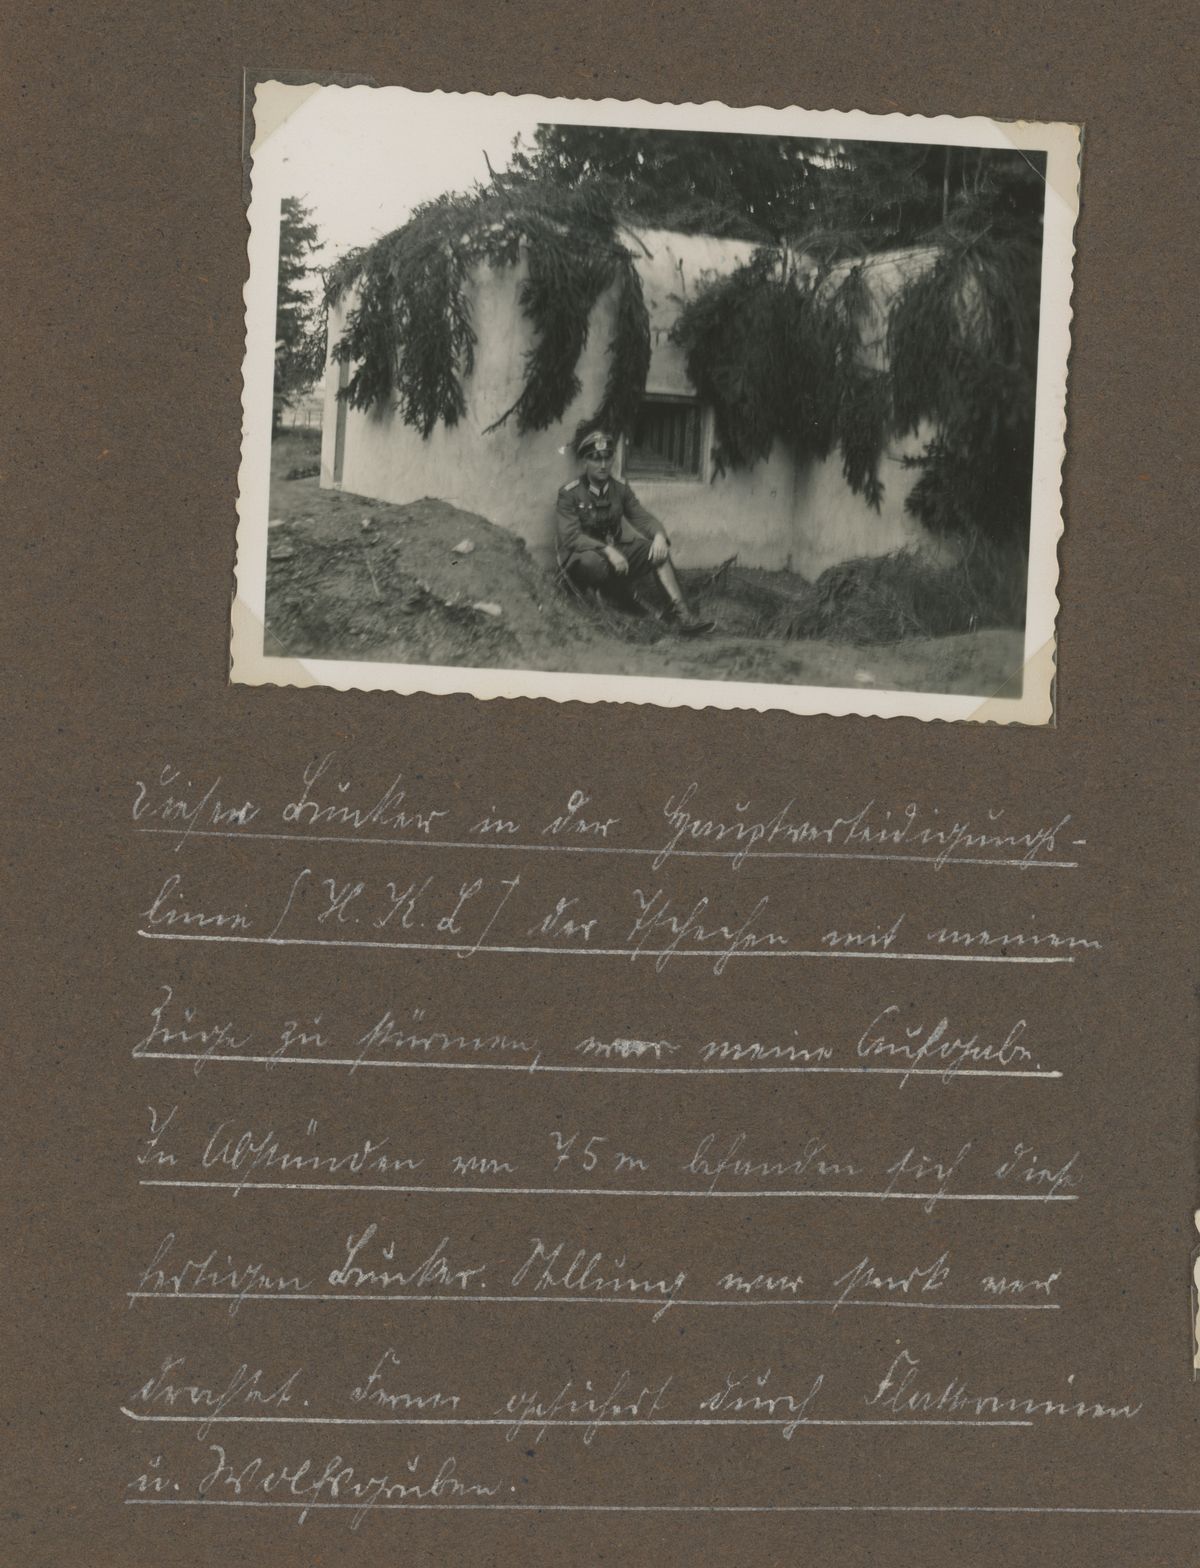 Diesen Bunker in der Hauptverteidigungs-
linie (H. K. L) der Tschechen mit meinem
Zuge zu stürmen, war meine Aufgabe.
In Abständen von 75 m befanden sich diese
artigen Bunker. Stellung war stark ver
drahtet. Ferner gesichert durch Flatterminen
u. Wolfsgruben.